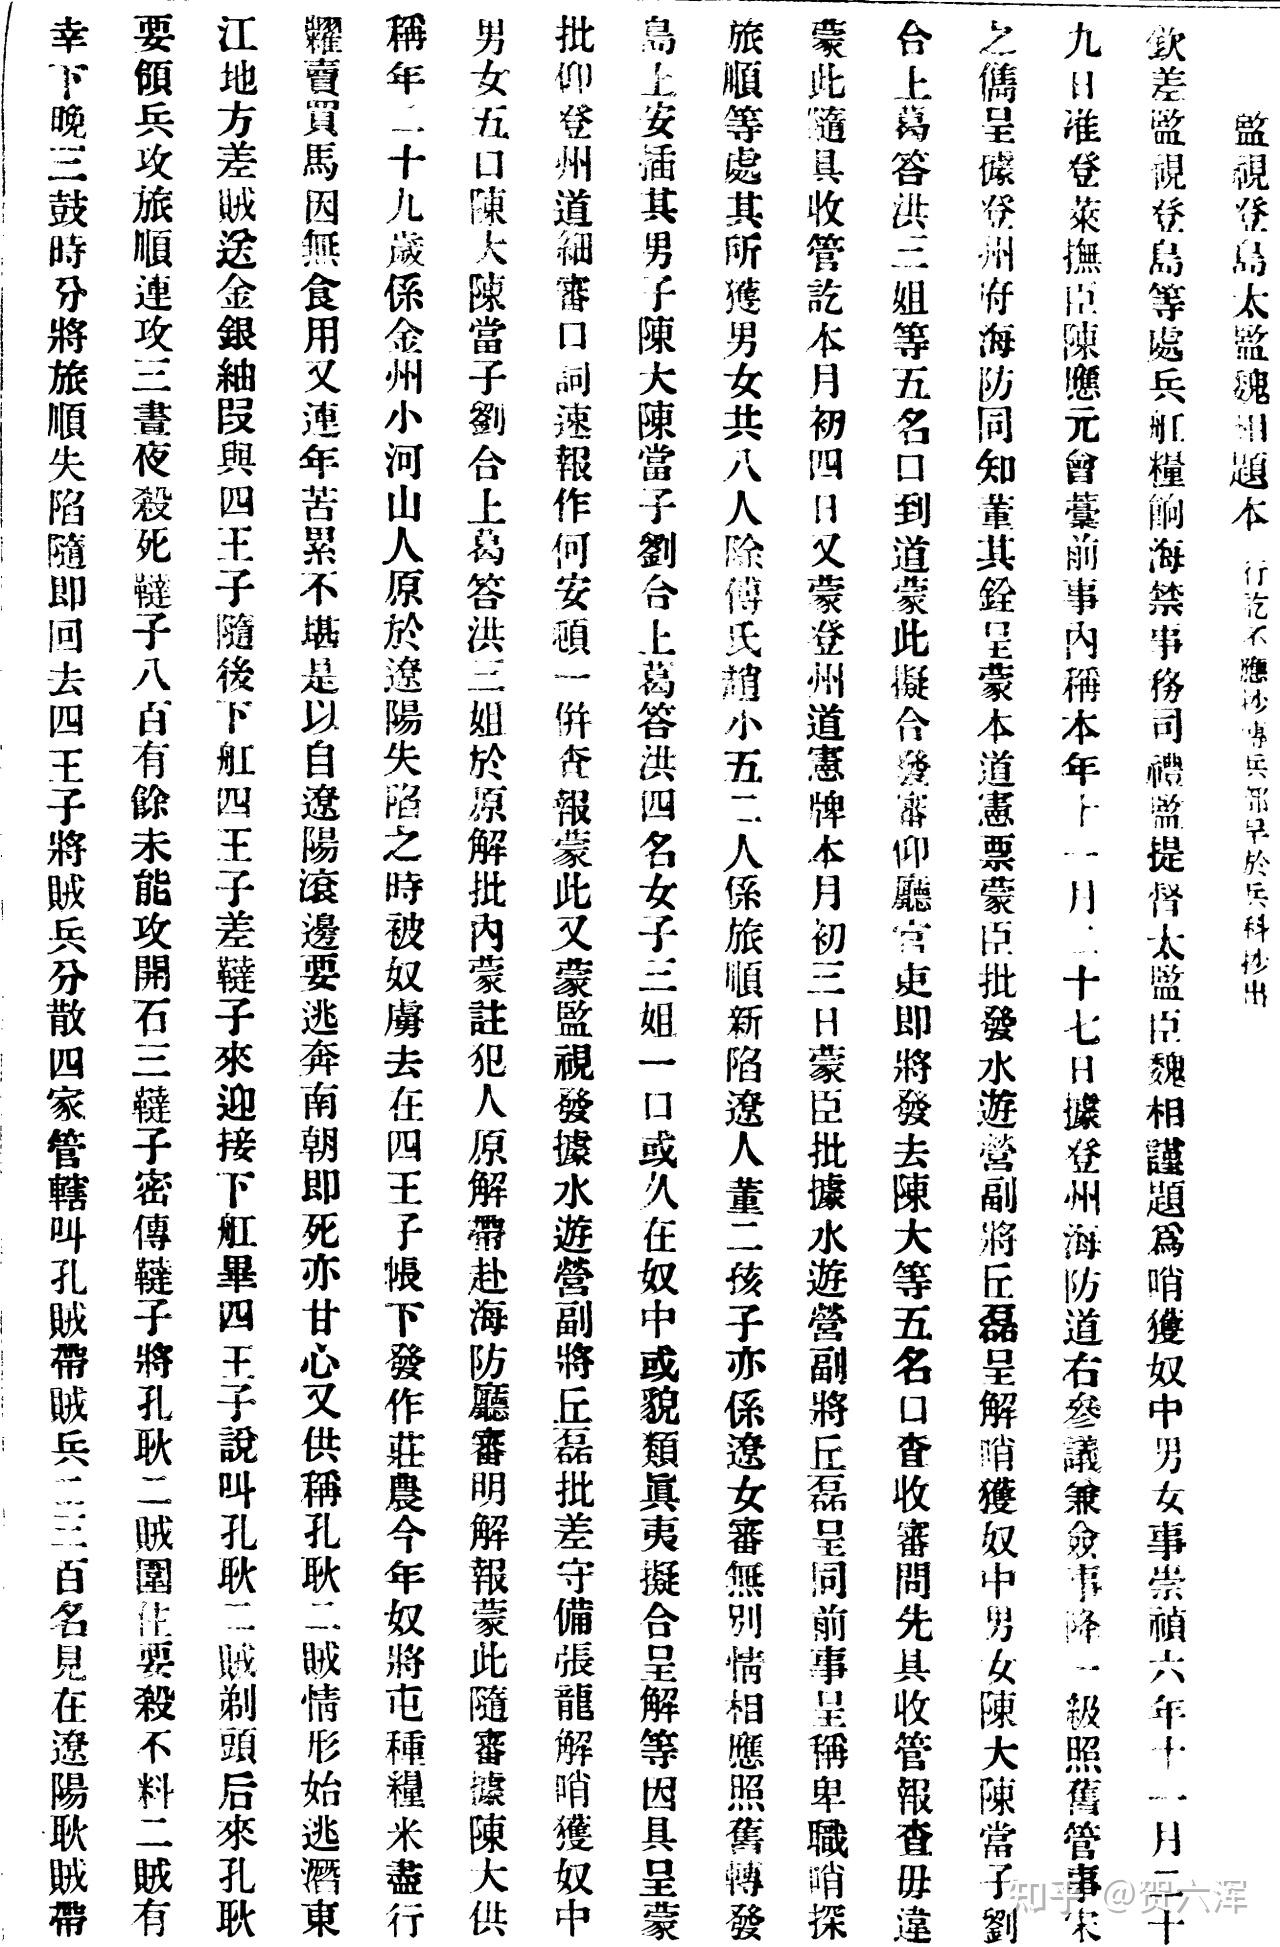 監視登島太監魏相題本 行訖不應抄傳兵部早於兵科抄出
欽差監視登島等處兵舡糧餉海禁事務司禮監提督太監臣魏相謹題爲哨獲奴中男女事崇禎六年十一月二十
九日准登萊撫臣陳應元會藁前事內稱本年十一月二十七日據登州海防道右參議兼僉事降一級照舊管事宋
之儁呈據登州府海防同知董其銓呈蒙本道憲票蒙臣批發水遊營副將丘磊呈解哨獲奴中男女陳大陳當子劉
合上葛答洪三姐等五名口到道蒙此擬合發審仰廳官吏即將發去陳大等五名口查收審問先具收管報查毋違
蒙此隨具收管訖本月初四日又蒙登州道憲牌本月初三日蒙臣批據水遊營副將丘磊呈同前事呈稱卑職哨探
旅順等處其所獲男女共八人除傅氏趙小五二人係旅順新陷遼人董二孩子亦係遼女審無別情相應照舊轉發
島上安插其男子陳大陳當子劉合上葛答洪四名女子三姐一口或久在奴中或貌類眞夷擬合呈解等因具呈蒙
批仰登州道細審口詞速報作何安頓一併查報蒙此又蒙監視發據水遊營副將丘磊批差守備張龍解哨獲奴中
男女五口陳大陳當子劉合上葛答洪三姐於原解批內蒙註犯人原解帶赴海防廳審明解報蒙此隨審據陳大供
稱年二十九歲係金州小河山人原於遼陽失陷之時被奴虜去在四王子帳下發作莊農今年奴將屯種糧米盡行
糶賣買馬因無食用又連年苦累不堪是以自遼陽滾邊要逃奔南朝即死亦甘心又供稱孔耿二賊情形始逃潛東
江地方差賊送金銀紬段與四王子隨後下舡四王子差韃子來迎接下舡畢四王子說叫孔耿二賊剃頭后來孔耿
要領兵攻旅順連攻三晝夜殺死韃子八百有餘未能攻開石三韃子密傳韃子將孔耿二賊圍住要殺不料二賊有
幸下晚三鼓時分將旅順失陷隨即回去四王子將賊兵分散四家管轄叫孔賊帶賊兵二三百名見在遼陽耿賊帶
知乎 @贺六浑